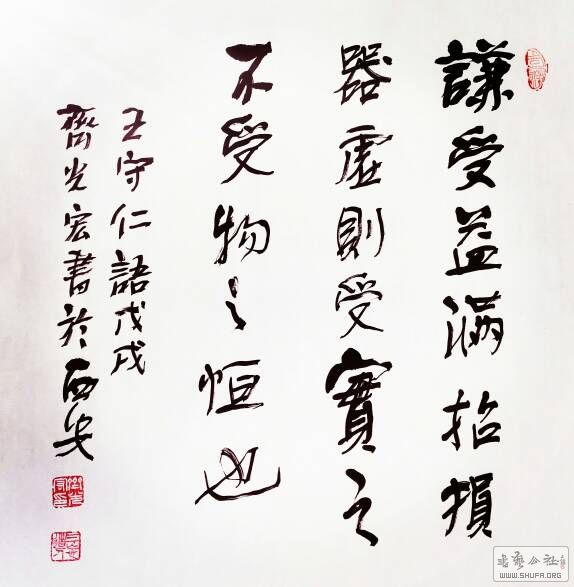 謙受益滿招損
器虛則受實之
不受物之恒也
王守仁語戊戌
齊光宏書於西安
書藝公社
WWW.SHUFA.ORG